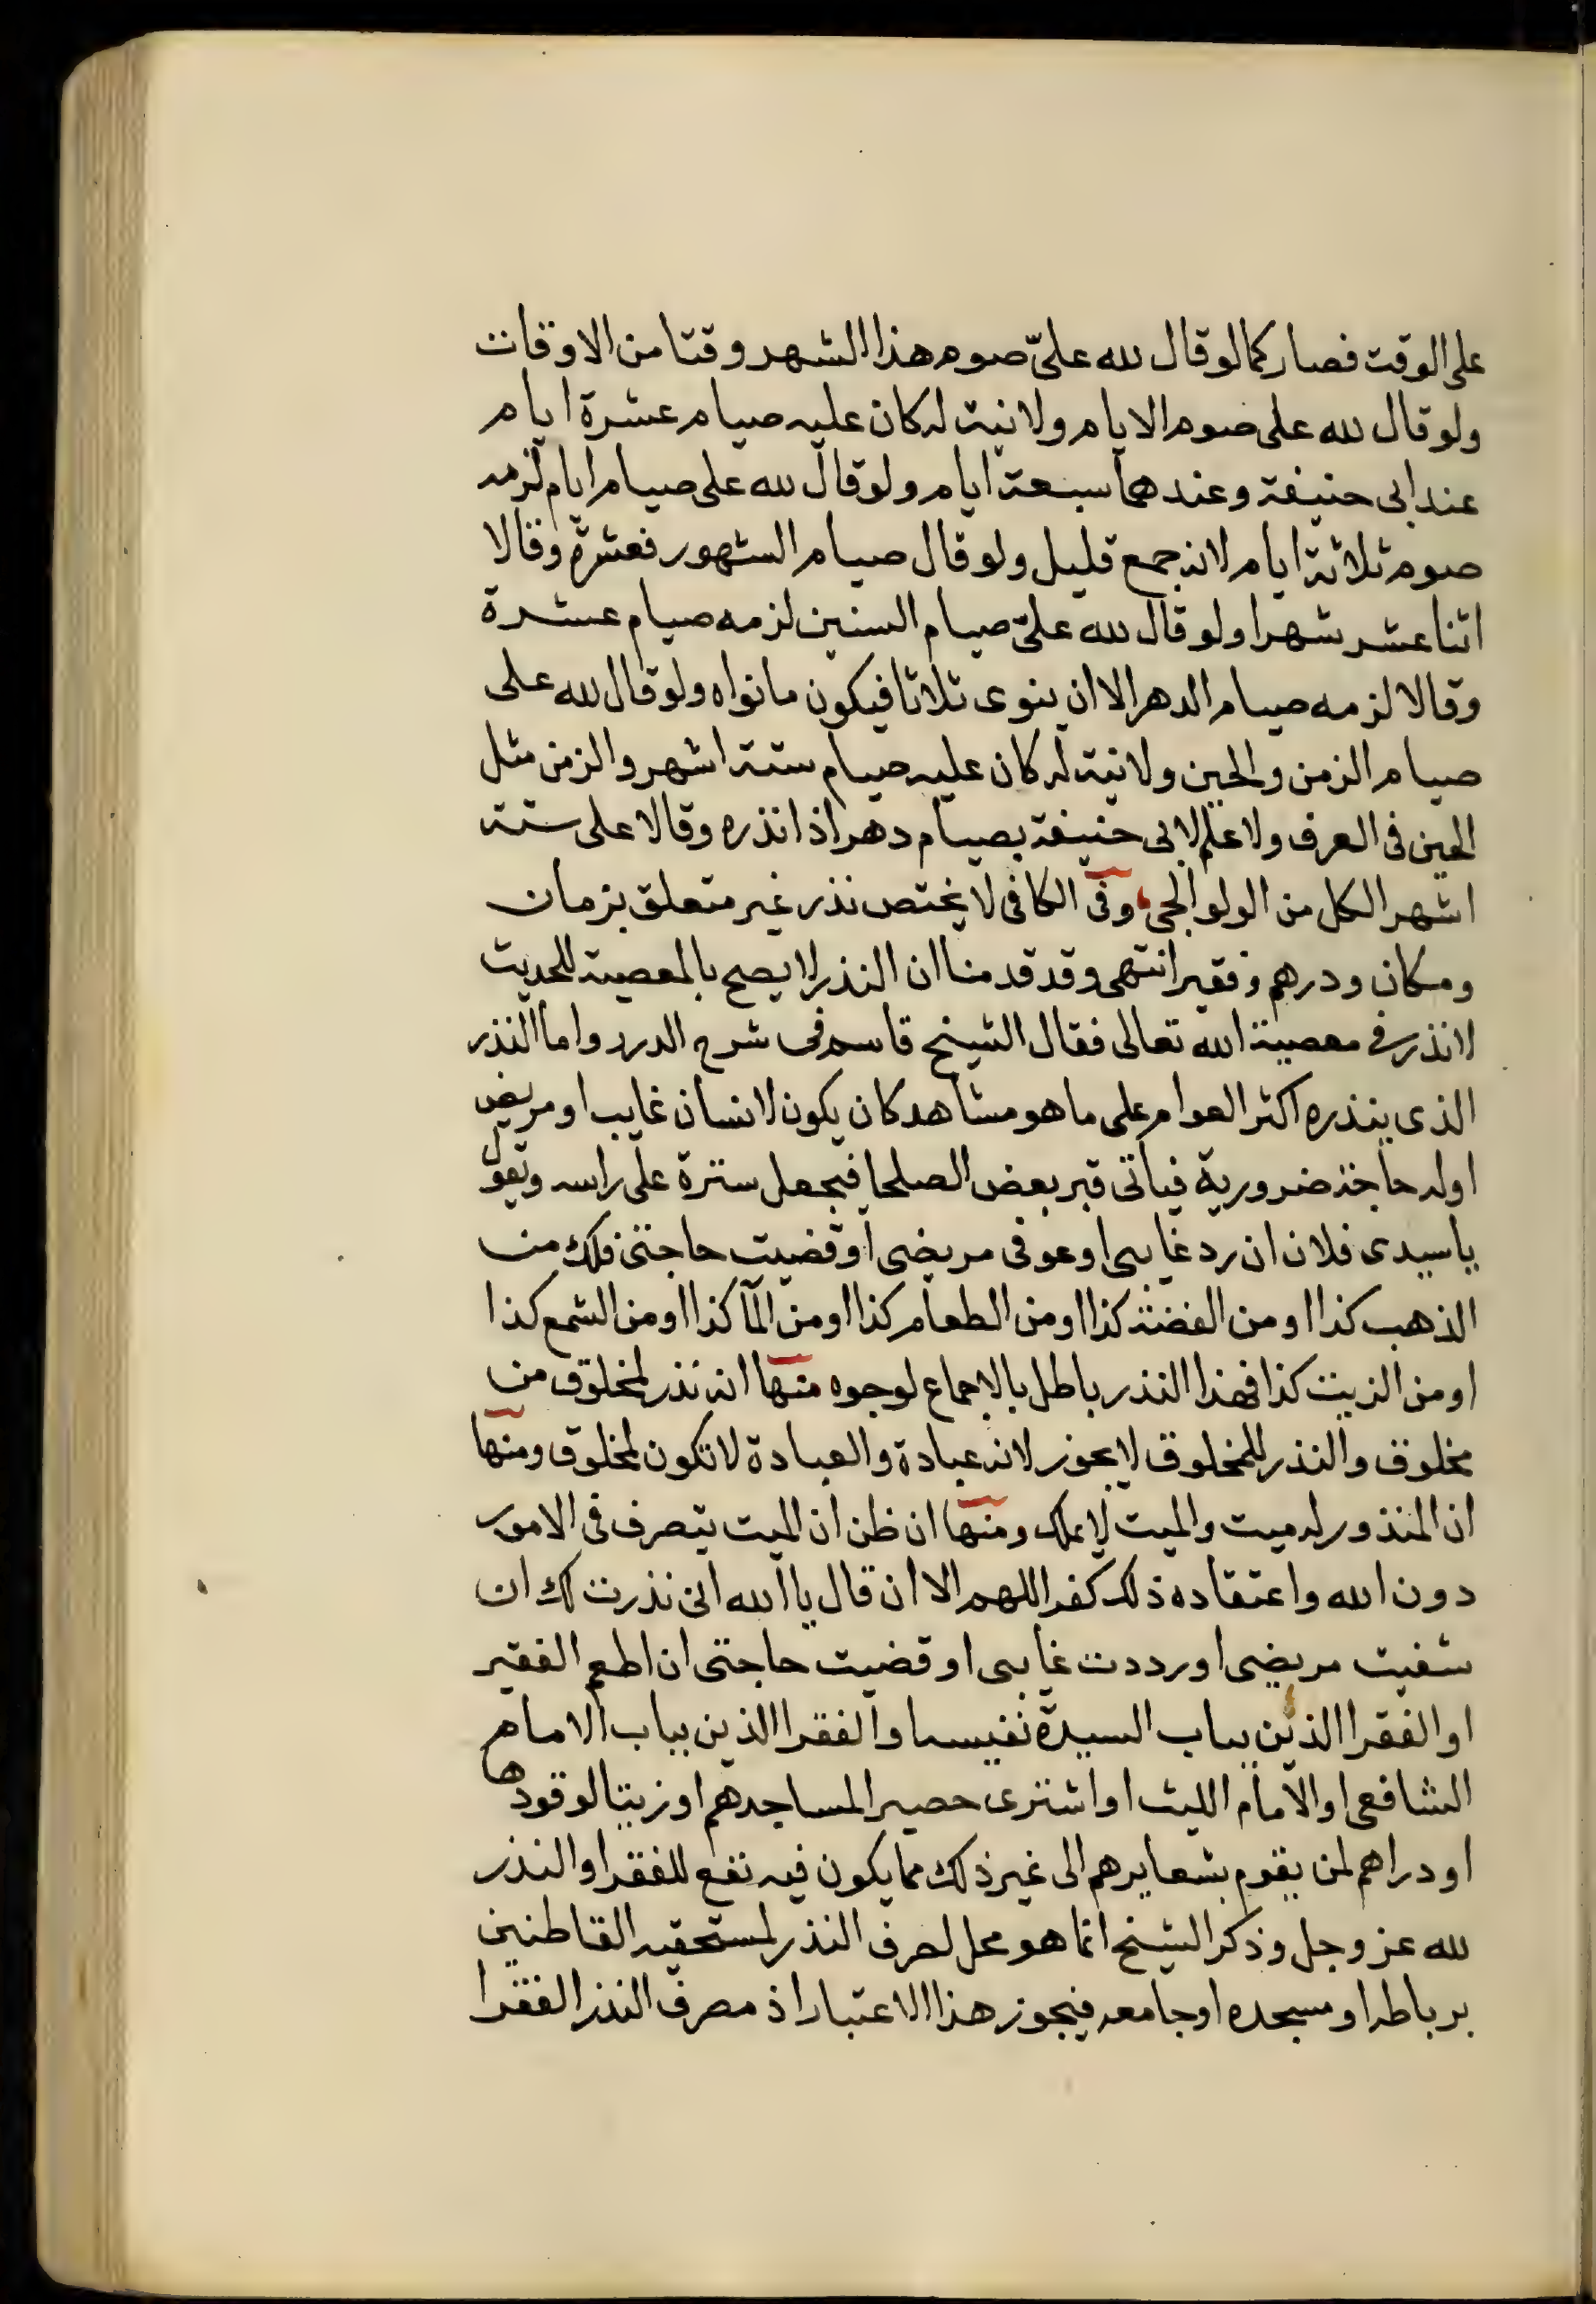 على الوقت فصار كما لو قال لله علىّ صوم هذا الشهر وقتا من الاوقات
ولو قال لله على صوم الايام ولا نية له كان عليه صيام عشرة ايام
عند ابى حنيفة وعندهما سبعة ايام ولو قال لله على صيام ايام لزمه
صوم ثلاثة ايام لانه جمع قليل ولو قال صيام الشهور فعشرة وقالا
اثنا عشر شهرا ولو قال لله علىّ صيام السنين لزمه صيام عشرة
وقالا لزمه صيام الدهر الا ان ينوى ثلاثا فيكون ما نواه ولو قال لله على
صيام الزمن والحين ولا نية له كان عليه صيام ستة اشهر والزمن مثل
الحين فى العرف ولا علم لابى حنيفة بصيام دهر اذا نذره وقالا على ستة
اشهر الكل من الولوالجى وفى الكافى لا يختص نذر غير متعلق بزمان
ومكان ودرهم وفقير انتهى وقد قدمنا ان النذر لا يصح بالمعصية للحديث
لا نذر فى معصية الله تعالى فقال الشيخ قاسم فى شرح الدرر واما النذر
الذى ينذره اكثر العوام على ما هو مشاهد كان يكون لانسان غايب او مريض
او له حاجة ضرورية فياتى قبر بعض الصلحا فيجعل سترة على راسه وتقول
يا سيدى فلان ان رد غايبى او عوفى مريضى او قضيت حاجتى فلك من
الذهب كذا او من الفضة كذا او من الطعام كذا او من المآ كذا او من الشمع كذا
او من الزيت كذا فهذا النذر باطل بالاجماع لوجوه منها انه نذر لمخلوق من
مخلوق والنذر للمخلوق لا يجوز لانه عبادة والعبادة لا تكون لمخلوق ومنها
ان المنذور له ميت والميت لا يملك ومنها ان ظن ان الميت يتصرف فى الامور
دون الله واعتقاده ذلك كفر اللهم الا ان قال يا الله انى نذرت لك ان
شفيت مريضى او رددت غايبى او قضيت حاجتى ان اطعم الفقير
او الفقرا الذين بباب السيدة نفيسا والفقرا الذين بباب الامام
الشافعى او الامام الليث او اشترى حصيرا لمساجدهم او زيتا لوقودها
او دراهم لمن يقوم بشعايرهم الى غير ذلك مما يكون فيه نفع للفقرا والنذر
لله عز وجل وذكر الشيخ انما هو محل لصرف النذر لمستحقيه القاطنين
برباطه او مسجده او جامعه فيجوز هذا الاعتبار اذ مصرف النذر الفقرا